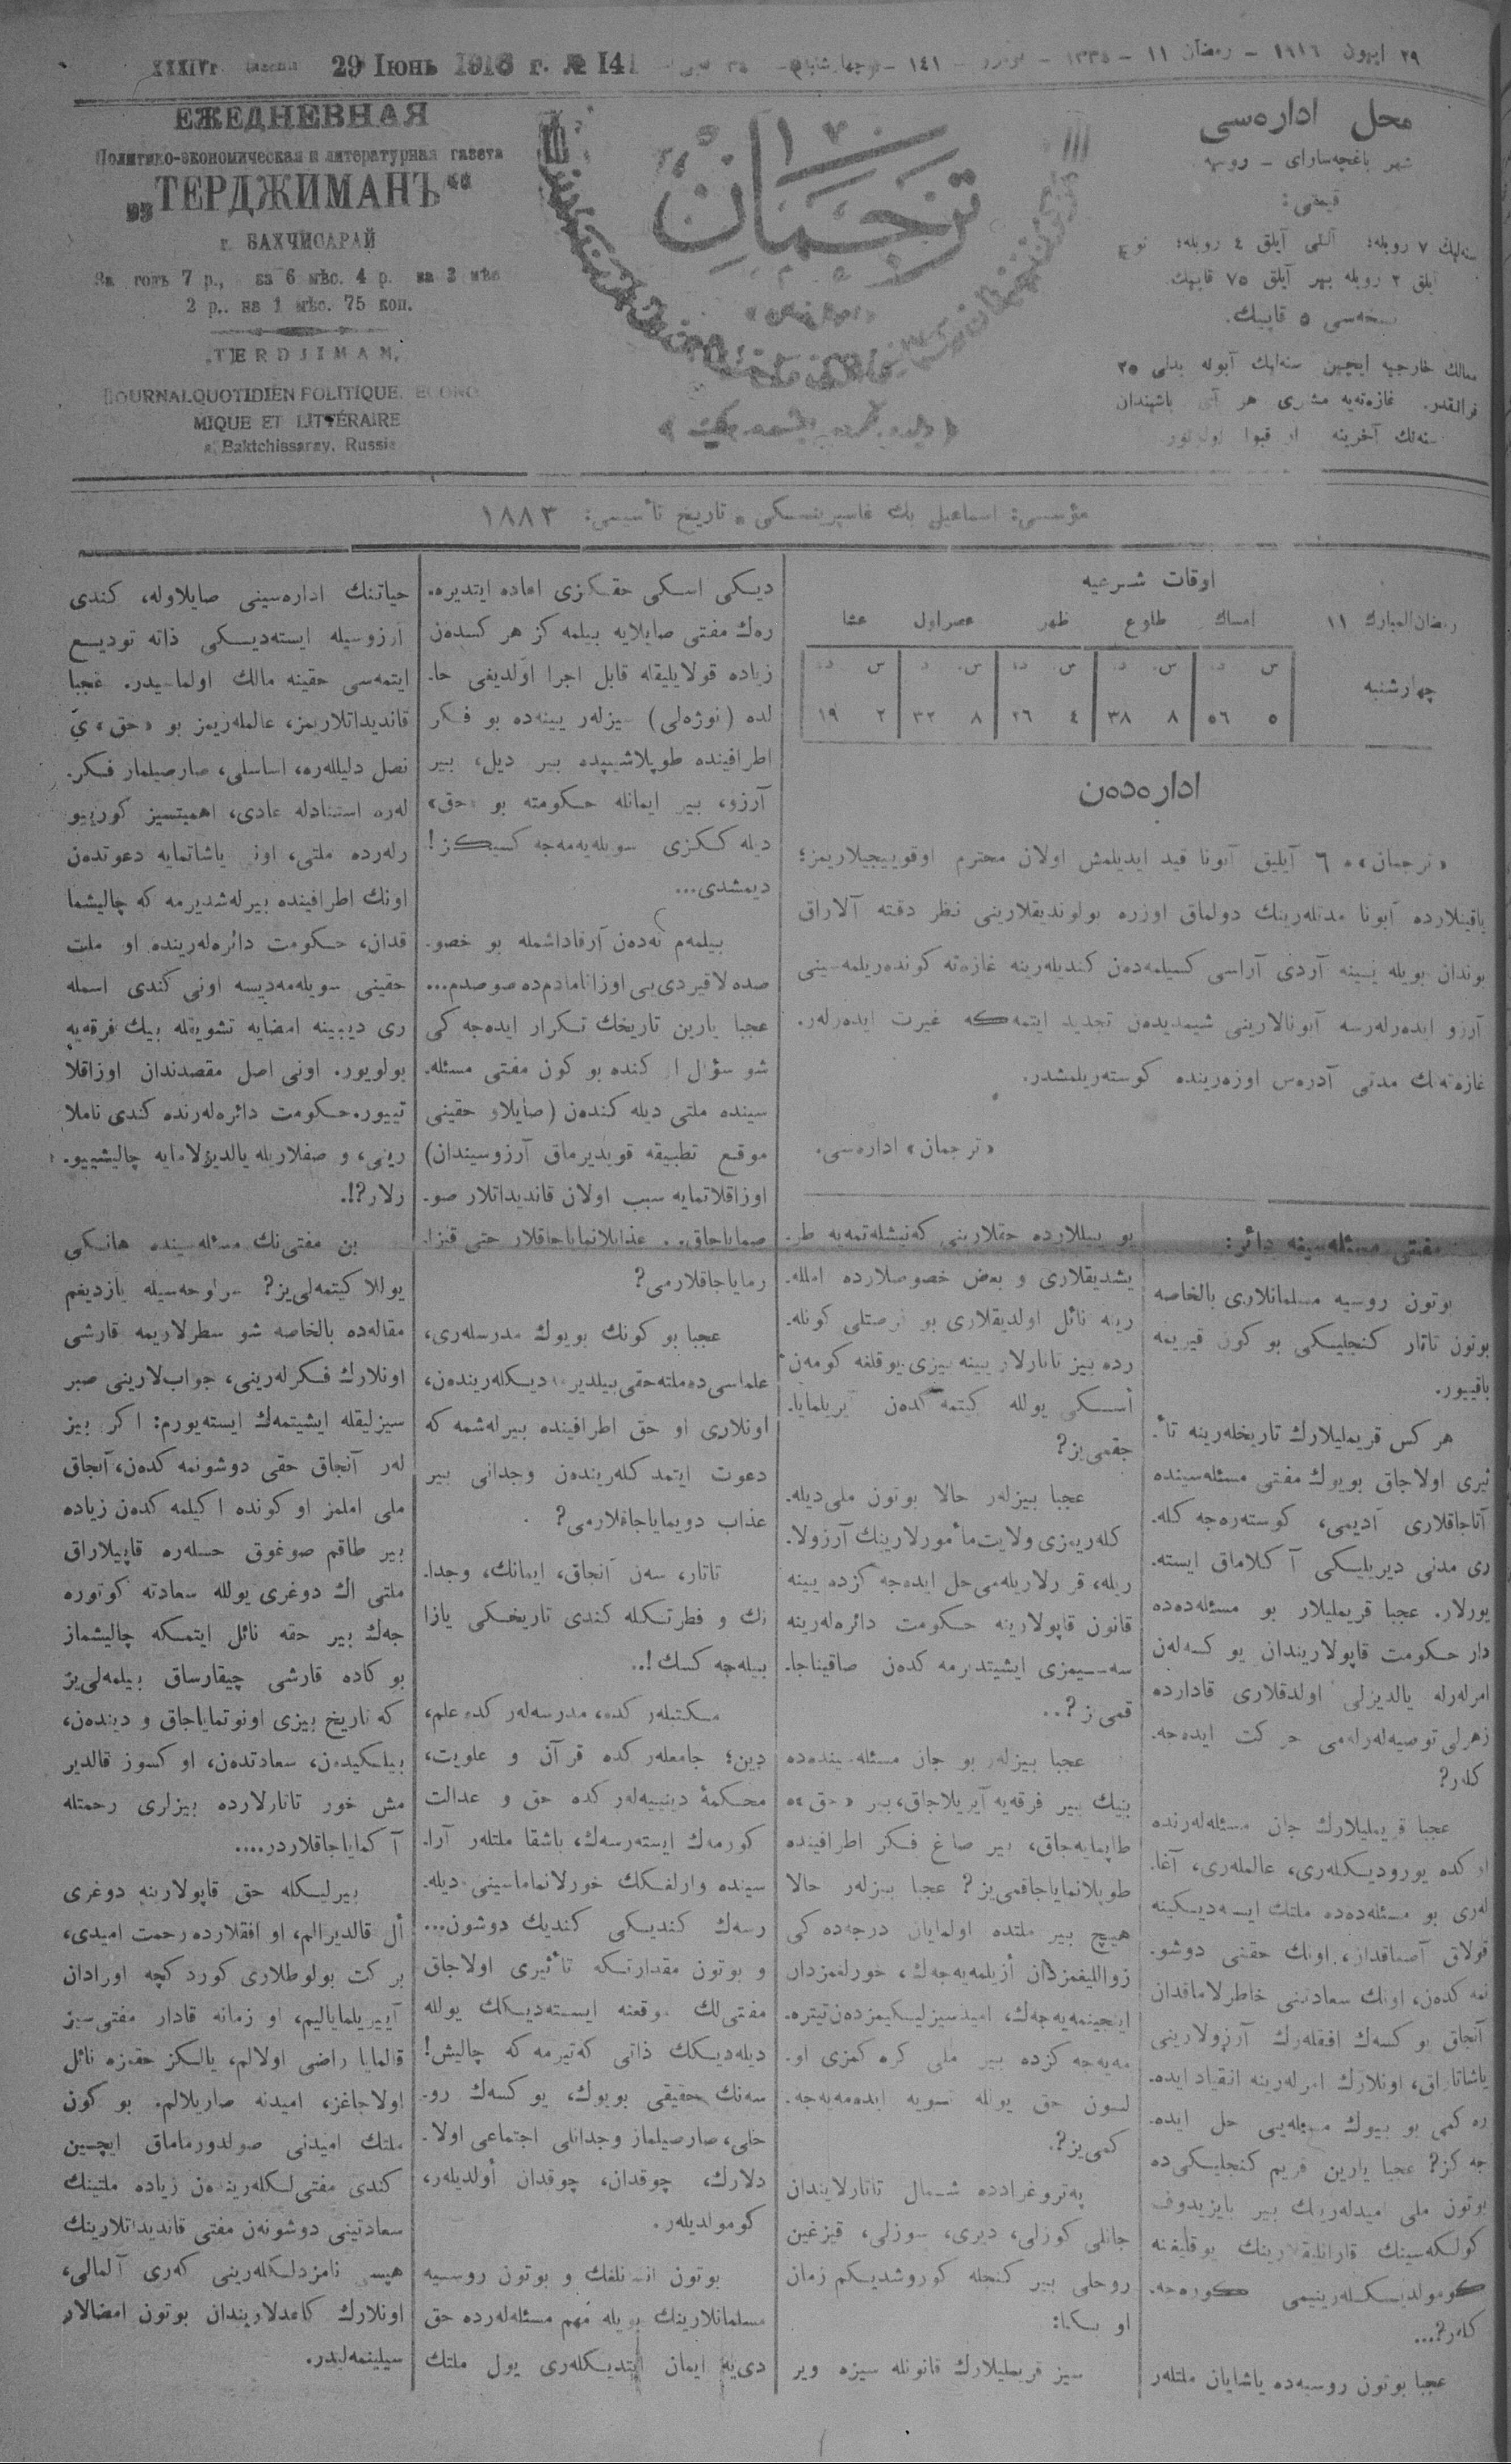 ٢٩ ايیون ١٩١٦ - رمضان ١١ - ١٣٣٤ - ١٤١
XXXIVг. 29 Іюнь 1916 г. № 141
ЕЖЕДНЕВНАЯ
Политико-экономическая и литературная газета
„ТЕРДЖИМАНЪ“
г. БАХЧИСАРАЙ
За годъ 7 р., за 6 мѣс. 4 р. за 3 мѣс
2 р.. за 1 мѣс. 75 коп.
„TERDJIMAN„
JOURNAL QUOTIDIEN POLITIQUE, ECONO
MIQUE ET LITTÉRAIRE
a. Baktchissaray, Russie
ترجمان
محل اداره‌سی
شهر باغچه‌سارای - روسیه
قیمتی:
سنه‌لیك ٧ روبله؛ آلتی آیلق ٤ روبله؛
آیلق ٢ روبله بیر آیلق ٧٥ قاپیك.
نسخه‌سی ٥ قاپیك.
ممالك خارجیه ایچین سنه‌لیك آبونه بدلی ٢٥
فرانقدر. غازه‌ته‌یه مشتری هر آی باشیندان
سنه‌نك آخرینه
مؤسسی: اسماعیل بك غاسپرینسكی. تاریخ تأسیسی: ١٨٨٣
اوقات شرعیه
رمضان‌المبارك ١١ امساك طلوع ظهر عصراول عشا
چهارشنبه
س د س د س د س د س د
٥ ٥٦ ٨ ٣٨ ٤ ٢٦ ٨ ٣٢ ٢ ١٩
اداره‌ده‌ن
«ترجمان» ٦ آیلیق آبونا قید ایدیلمش اولان محترم اوقوییجیلاریمز؛
یاقینلارده آبونا مدتله‌رینك دولماق اوزره بولوندیقلارینی نظر دقته آلاراق
بوندان بویله یینه آردی آراسی كسیلمه‌دن كندیله‌رینه غازه‌ته كونده‌ریلمه‌سینی
آرزو ایده‌رله‌رسه آبونالارینی شیمدیدن تجدید ایتمه‌كه غیرت ایده‌رله‌ر.
غازه‌ته‌نك مدتی آدره‌س اوزه‌رینده كوسته‌ریلمشدر.
«ترجمان» اداره‌سی.
مفتی مسئله‌سینه دائر:
بوتون روسیه مسلمانلاری بالخاصه
بوتون تاتار كنجلیكی بو كون قیریمه
باقییور.
هر كس قریملیلارك تاریخله‌رینه تأ-
ثیری اولاجاق بویوك مفتی مسئله‌سینده
آتاجاقلاری آدیمی، كوسته‌ره‌جه كله-
ری مدنی دیریلیكی آكلاماق ایسته-
یورلار. عجبا قریملیلار بو مسئله‌ده‌ده
دار حكومت قاپولاریندان یوكسه‌لن
امرله‌رله یالدیزلی اولدقلاری قادارده
زهرلی توصیه‌له‌رله‌می حركت ایده‌جه-
كلر?
عجبا قریملیلارك جان مسئله‌له‌رنده
اوكده یورودیكله‌ری، عالمله‌ری، آغا-
له‌ری بو مسئله‌ده‌ده ملتك ایسته‌دیكینه
قولاق آصماقدان، اونك حقنی دوشو-
نمه كدن، اونك سعادتنی خاطرلاماقدان
آنجاق یوكسك افقله‌رك آرزولارینی
یاشاتاراق، اونلارك امرله‌رینه انقیاد ایده-
ره كمی بو بیوك مسئله‌یی حل ایده-
جه كز? عجبا یارین قریم كنجلیكی‌ده
بوتون ملی امیدله‌رینك بیر بایزیدوف
كولكه‌سینك قارانلیقلارینك یوقلیغنه
كومولدیكله‌رینیمی كوره‌جه-
كلر?...
عجبا بوتون روسیه‌ده یاشایان ملتله‌ر
بو ییللارده حقلارینی كه‌نیشله‌تمه‌یه طر-
یشدیقلاری و بعض خصوصلارده امللـه-
رینه نائل اولدیقلاری بو فرصتلی كونله-
رده بیز تاتارلار یینه بیزی یوقلغه كومه‌ن
أسكی یوللـه كیتمه كدن آیریلمایا-
جقمی‌یز?
عجبا بیزله‌ر حالا بوتون ملی دیله-
كله‌ریمزی ولایت مأمورلارینك آرزولا-
ریله، قرارلاریله‌می حل ایده‌جه كز‌ده یینه
قانون قاپولارینه حكومت دائره‌له‌رینه
سه‌سیمزی ایشیتدیرمه كدن صاقیناجا-
قمی ز?..
عجبا بیزله‌ر بو جان مسئله‌سینده‌ده
بنیك بیر فرقه‌یه آیریلاجاق، بیر «حق»ه
طاپمایه‌جاق، بیر صاغ فكر اطرافینده
طوپلانمایاجاقمی‌یز? عجبا بیزله‌ر حالا
هیچ بیر ملتده اولمایان درجه‌ده كی
زواللیغمزدان أزیلمه‌یه‌جه‌ك، خورلغمزدان
اینجینمه‌یه‌جه‌ك، امیدسیزلیكیمزدن تیتره-
مه‌یه‌جه كز‌ده بیر ملی كره كمزی او-
لسون حق یوللـه تسویه ایده‌مه‌یه‌جه-
كمی‌یز?.
په‌تروغرادده شمال تاتارلایندان
جانلی كوزلی، دیری، سوزلی، قیزغین
روحلی بیر كنجله كوروشدیكم زمان
او بكا:
سیز قریملیلارك قانونله سیزه ویر
دیكی اسكی حقكزی اعاده ایتدیره-
ره‌ك مفتی صایلایه بیلمه كز هر كسدن
زیاده قولایلیقله قابل اجرا اولدیغی حا-
لده (نوژه‌لی) سیزله‌ر یینه‌ده بو فكر
اطرافینده طوپلاشیپده بیر دیل، بیر
آرزو، بیر ایمانله حكومته بو «حق»
دیله ككزی سویله‌یه‌مه‌جه كسیكز!
دیمشدی...
بیلمه‌م نه‌دن آرقاداشمله بو خصو-
صده لاقیردی‌یی اوزاتامادم‌ده صوصدم...
عجبا یارین تاریخك تكرار ایده‌جه كی
شو سؤال اوكنده بو كون مفتی مسئله-
سینده ملتی دیله كندن (صایلاو حقینی
موقع تطبیقه قویدیرماق آرزوسیندان)
اوزاقلاتمایه سبب اولان قاندیداتلار صو-
صمایاجاق.. عذابلانمایاجاقلار حتی قیزا-
رمایاجاقلارمی?
عجبا بو كونك بویوك مدرسله‌ری،
علماسی‌ده ملته حقی بیلدیرمه‌دیكله‌ریندن،
اونلاری او حق اطرافینده بیرله‌شمه كه
دعوت ایتمه كله‌ریندن وجدانی بیر
عذاب دویمایاجاقلارمی?
تاتار، سن آنجاق، ایمانك، وجدا-
نك و فطرتكله كندی تاریخكی یازا
بیله‌جه كسك!..
مكتبله‌ر كده، مدرسه‌له‌ر كده علم،
دین؛ جامعله‌ر كده قرآن و علویت،
محكمهٔ دینییه‌له‌ر كده حق و عدالت
كورمه‌ك ایسته‌رسه‌ك، باشقا ملتله‌ر آرا-
سینده وارلغكك خورلانماماسینی دیله-
رسه‌ك كندیكی كندیك دوشون...
و بوتون مقدارتكه تأثیری اولاجاق
مفتی‌لك موقعنه ایسته‌دیكك یوللـه
دیله‌دیكك ذاتی كه‌تیرمه كه چالیش!
سه‌نك حقیقی بویوك، یوكسه‌ك رو-
حلی، صارصیلماز وجدانلی اجتماعی اولا-
دلارك، چوقدان، چوقدان أولدیله‌ر،
كومولدیله‌ر.
بوتون انسانلغك و بوتون روسیه
مسلمانلارینك بویله مهم مسئله‌له‌رده حق
دی‌یه ایمان ایتدیكله‌ری یول ملتك
حیاتنك اداره‌سینی صایلاوله، كندی
آرزوسیله ایسته‌دیكی ذاته تودیع
ایتمه‌سی حقینه مالك اولماسیدر. عجبا
قاندیداتلاریمز، عالمله‌ریمز بو «حق»ی
نصل دلیلله‌ره، اساسلی، صارصیلماز فكر-
له‌ره استنادله عادی، اهمیتسیز كورییو
رله‌رده ملتی، اونی یاشاتمایه دعوتدن
اونك اطرافینده بیرله‌شدیرمه كه چالیشما
قدان، حكومت دائره‌له‌رینده او ملت
حقینی سویله‌مه‌دیسه اونی كندی اسمله
ری دیبینه امضایه تشویقله بیك فرقه‌یه
بولویور. اونی اصل مقصدندان اوزاقلا
تییور. حكومت دائره‌له‌رنده كندی ناملا
رینی، و صفلاریله یالدیزلامایه چالیشییو-
رلار?!.
بن مفتی‌نك مسئله‌سینده هانكی
یوللا كیتمه‌لی‌یز? سراوحه‌سیله یازدیغم
مقاله‌ده بالخاصه شو سطرلاریمه قارشی
اونلارك فكرله‌رینی، جواب‌لارینی صبر
سیزلیقله ایشیتمه‌ك ایسته‌یورم: اكر بیز
له‌ر آنجاق حقی دوشونمه كدن، آنجاق
ملی املمز اوكونده اكیلمه كدن زیاده
بیر طاقم صوغوق حسله‌ره قاپیلاراق
ملتی اك دوغری یوللـه سعادته كوتوره
جه‌ك بیر حقه نائل ایتمكه چالیشماز
بوكاده قارشی چیقارساق بیلمه‌لی‌یز
كه تاریخ بیزی اونوتمایاجاق و دیندن،
بیلكیدن، سعادتدن، اوكسوز قالدیر
مش خور تاتارلارده بیزلری رحمتله
آكمایاجاقلاردر....
بیرلیكله حق قاپولارینه دوغری
أل قالدیرالم، او افقلارده رحمت امیدی،
بركت بولوطلاری كوردكچه اورادان
آییریلمایالیم، او زمانه قادار مفتی‌سیز
قالمایا راضی اولالم، یالكز حقمزه نائل
اولاجاغز، امیدنه صاریلالم. بو كون
ملتك امیدنی صولدورماماق ایچین
كندی مفتی‌لكله‌رینده‌ن زیاده ملتینك
سعادتینی دوشونه‌ن مفتی قاندیداتلارینك
هپسی نامزدلكله‌رینی كه‌ری آلمالی،
اونلارك كاغدلاریندان بوتون امضالار
سیلینمه‌لیدر.